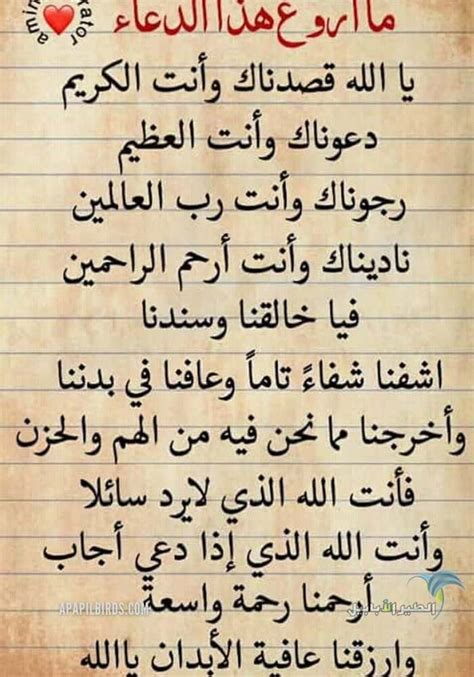 ما أروع هذا الدعاء
يا الله قصدناك وأنت الكريم
دعوناك وأنت العظيم
رجوناك وأنت رب العالمين
ناديناك وأنت أرحم الراحمين
فيا خالقنا وسندنا
اشفنا شفاءً تاماً وعافنا في بدننا
وأخرجنا مما نحن فيه من الهم والحزن
فأنت الله الذي لايرد سائلا
وأنت الله الذي إذا دعي أجاب
أرحمنا رحمة واسعة
وارزقنا عافية الأبدان ياالله
APAPILBIRDS.COM
الطير الأبابيل